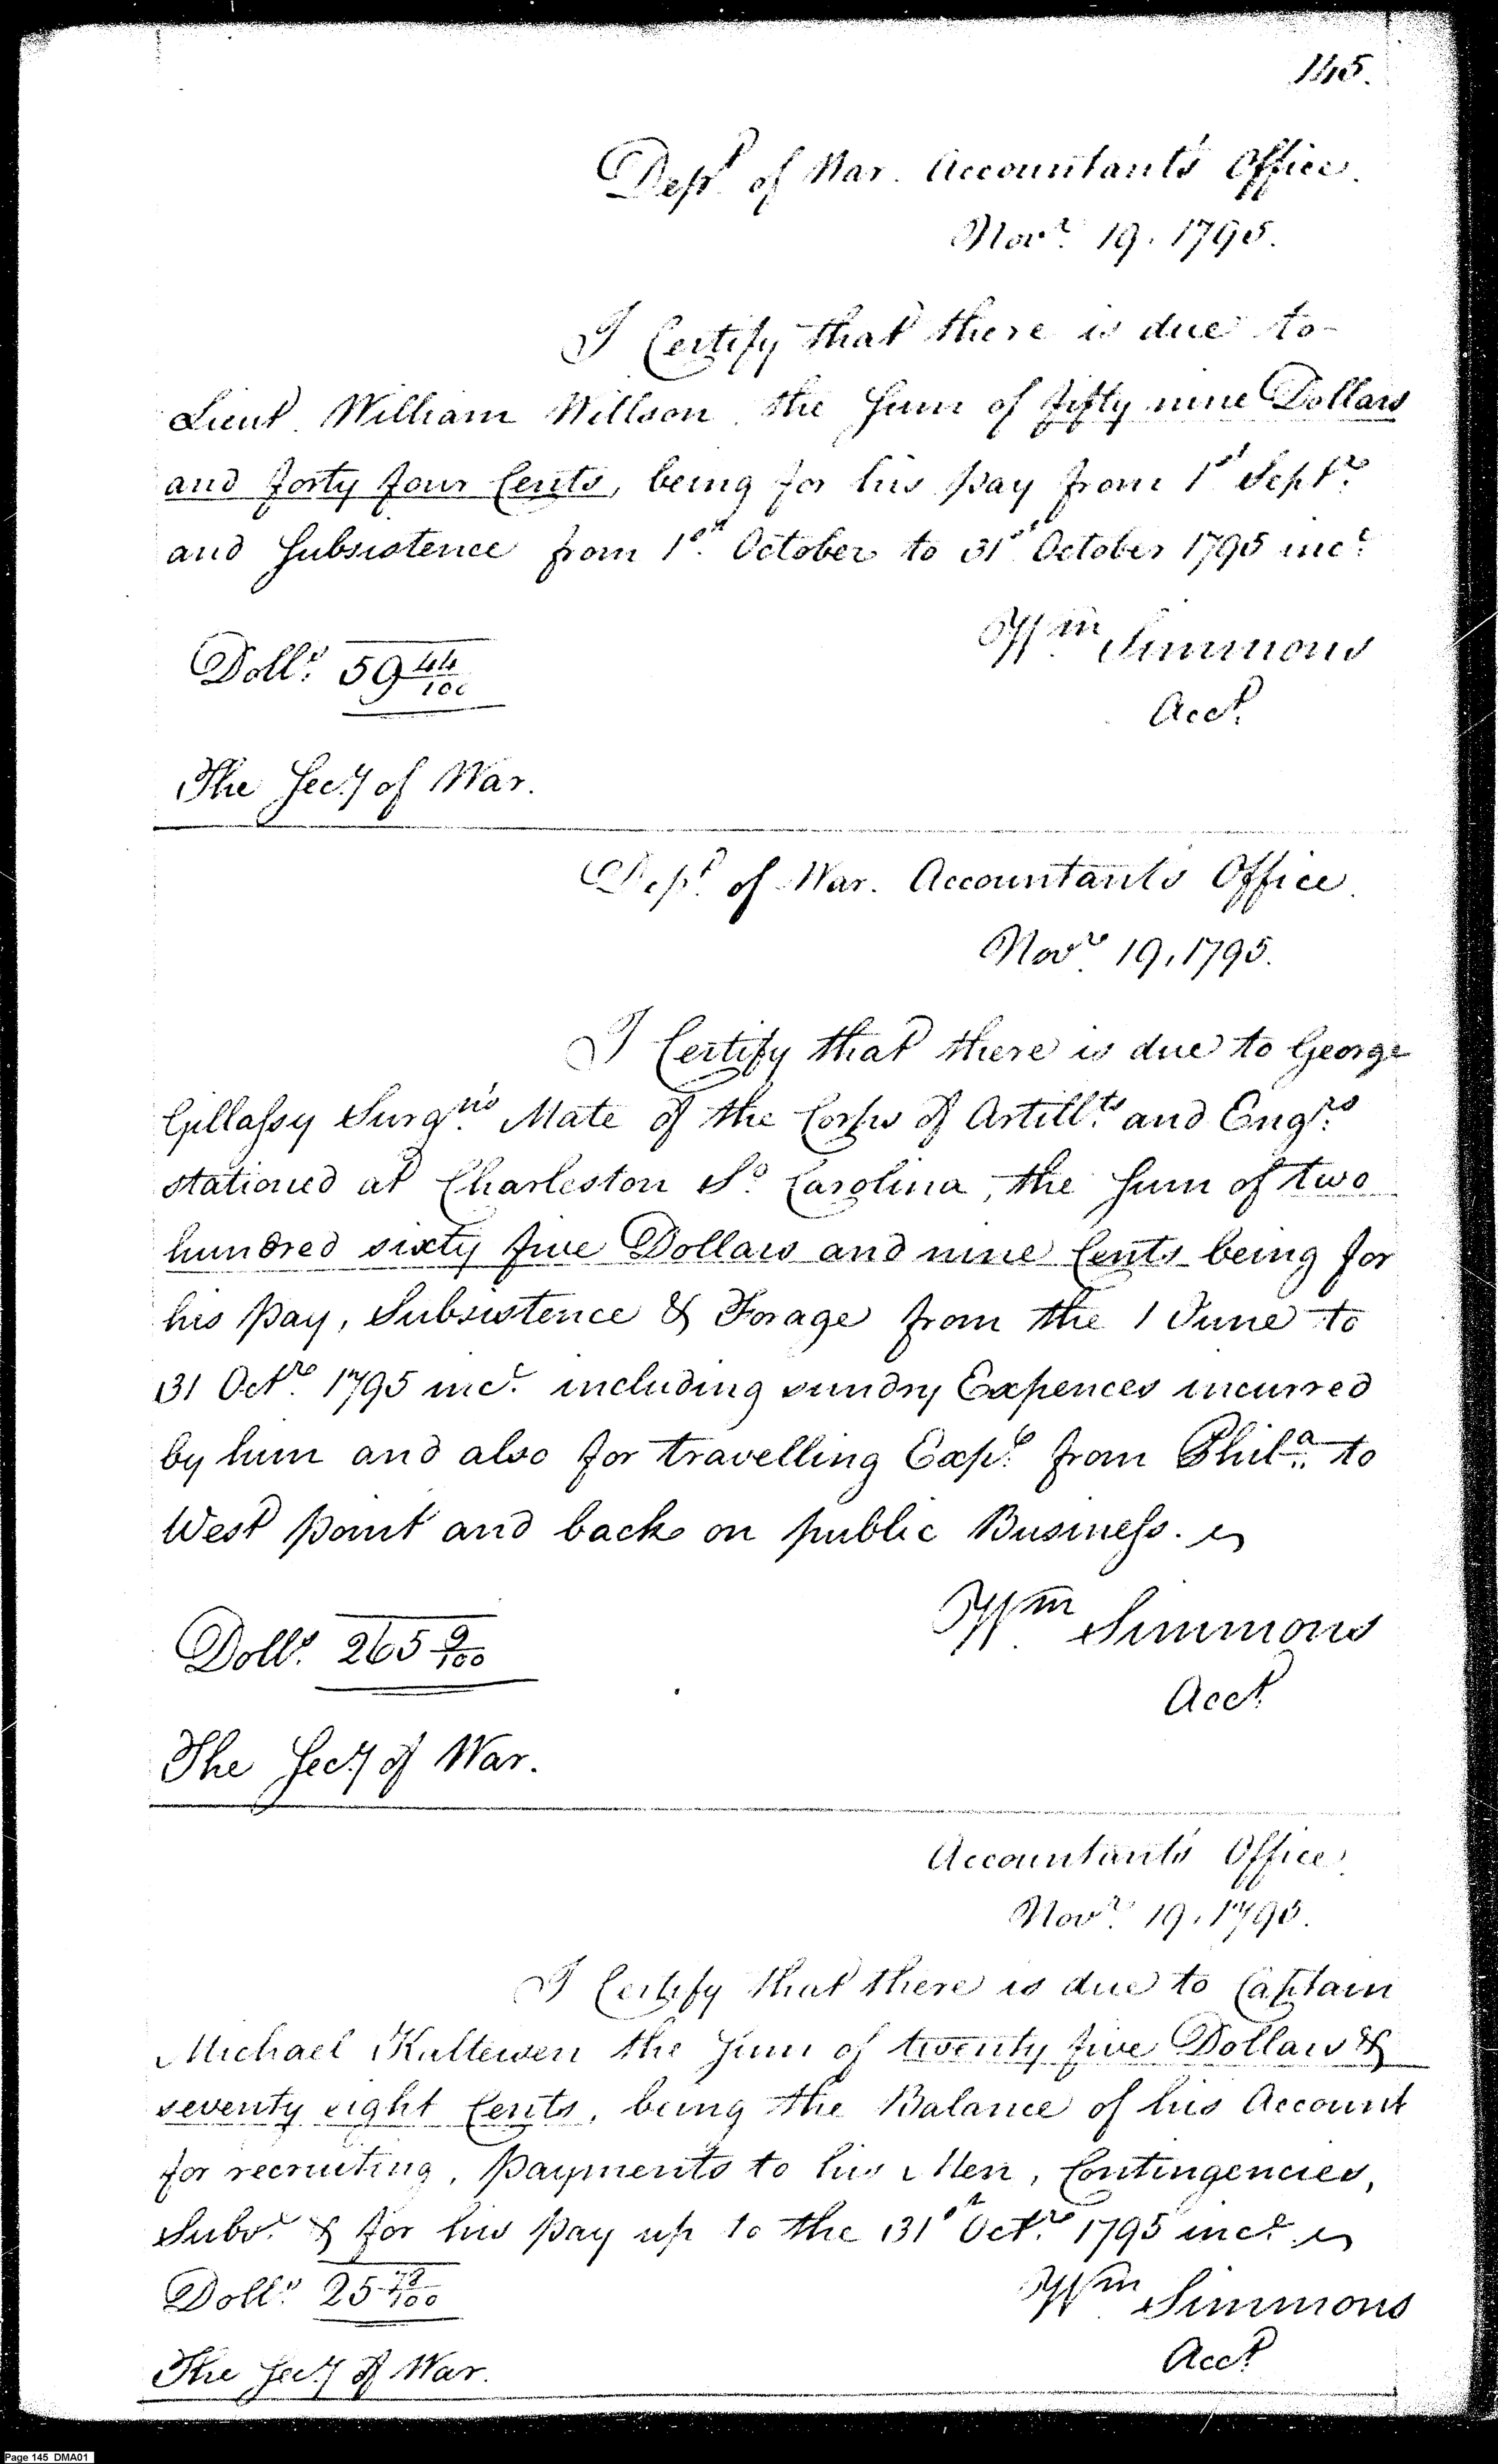 145.
Dept. of War. Accountant's Office.
Novr. 19. 1795.
I Certify that there is due to
Lieut. William Willson the Sum of fifty nine Dollars
and forty four Cents, being for his pay from 1st Septr.
and Subsistence from 1st October to 31st October 1795 inc.
Dolls. 59 44/100
Wm. Simmons
Acct.
The Secy of War.
Dept. of War. Accountant's Office.
Novr. 19, 1795.
I Certify that there is due to George
Gillassy Surgn's Mate of the Corps of Artillts. and Engrs.
stationed at Charleston So. Carolina, the Sum of two
hundred sixty five Dollars and nine Cents being for
his pay, Subsistence & Forage from the 1 June to
31 Octr. 1795 inc. including sundry Expences incurred
by him and also for travelling Exps. from Phila. to
West point and back on public Business.
Dolls. 265 9/100
Wm. Simmons
Acct.
The Secy of War.
Accountant's Office.
Novr. 19, 1795.
I Certify that there is due to Captain
Michael the Sum of twenty five Dollars &
seventy eight Cents, being the Balance of his Account
for recruiting, payments to his Men, Contingencies,
Subs. & for his pay up to the 31st Octr. 1795 inc.
Dolls. 25 78/100
Wm. Simmons
Acct.
The Secy of War.
Page 145 DMA01